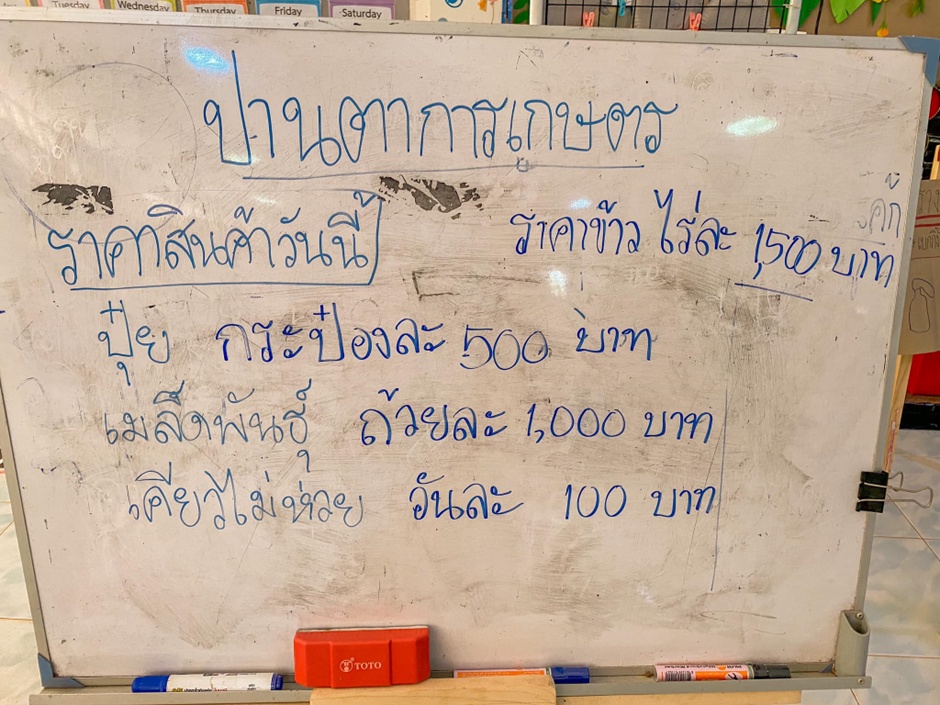 Tuesday
Wednesday
Thursday
Friday
Saturday
ปานตาการเกษตร
ราคาสินค้าวันนี้
ราคาข้าว ไร่ละ 1,500 บาท
ปุ๋ย กระป๋องละ 500 บาท
เมล็ดพันธุ์ ถ้วยละ 1,000 บาท
เคียวไม่ห่วย อันละ 100 บาท
TOTO